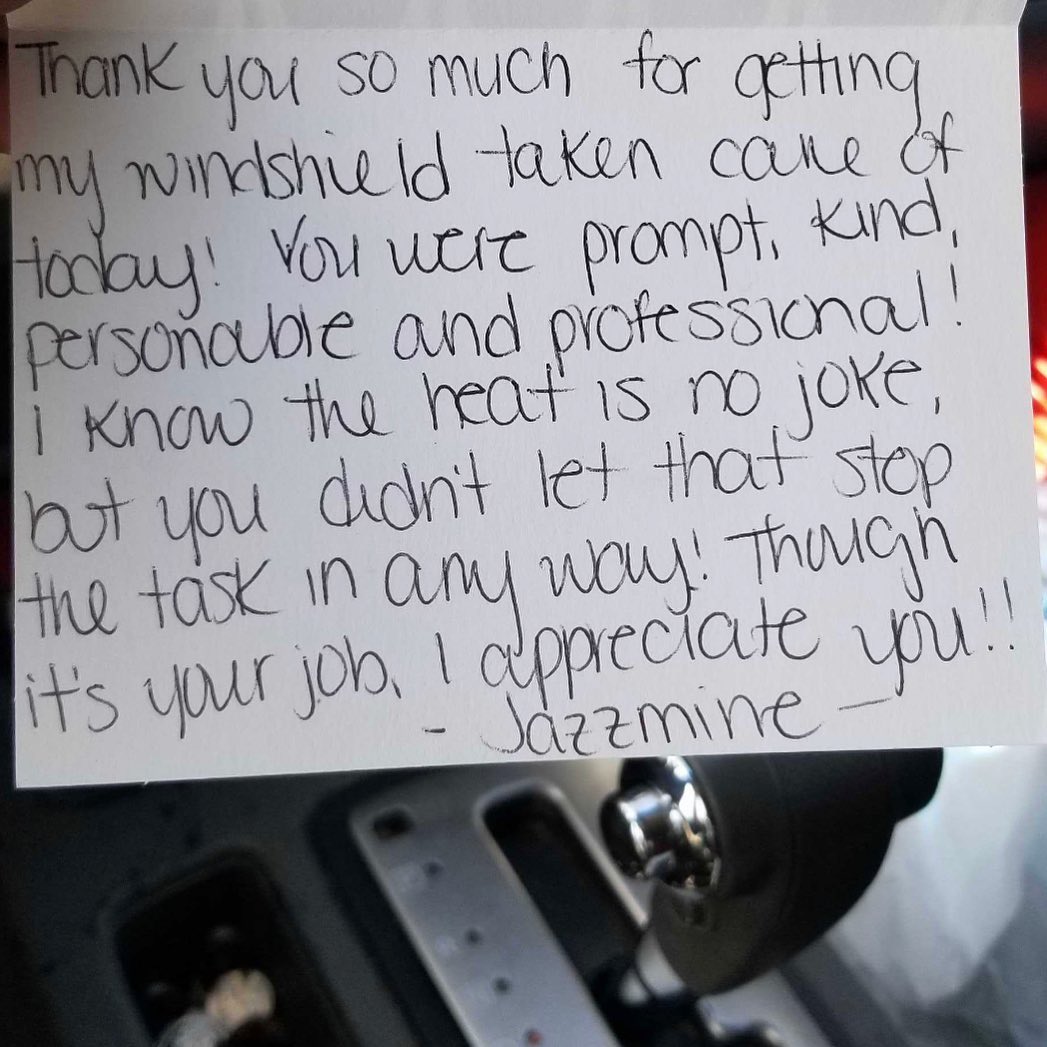 Thank you so much for getting
my windshield taken care of
today! You were prompt, kind,
personable and professional!
I know the heat is no joke,
but you didn't let that stop
the task in any way! Though
it's your job, I appreciate you!!
- Jazzmine -